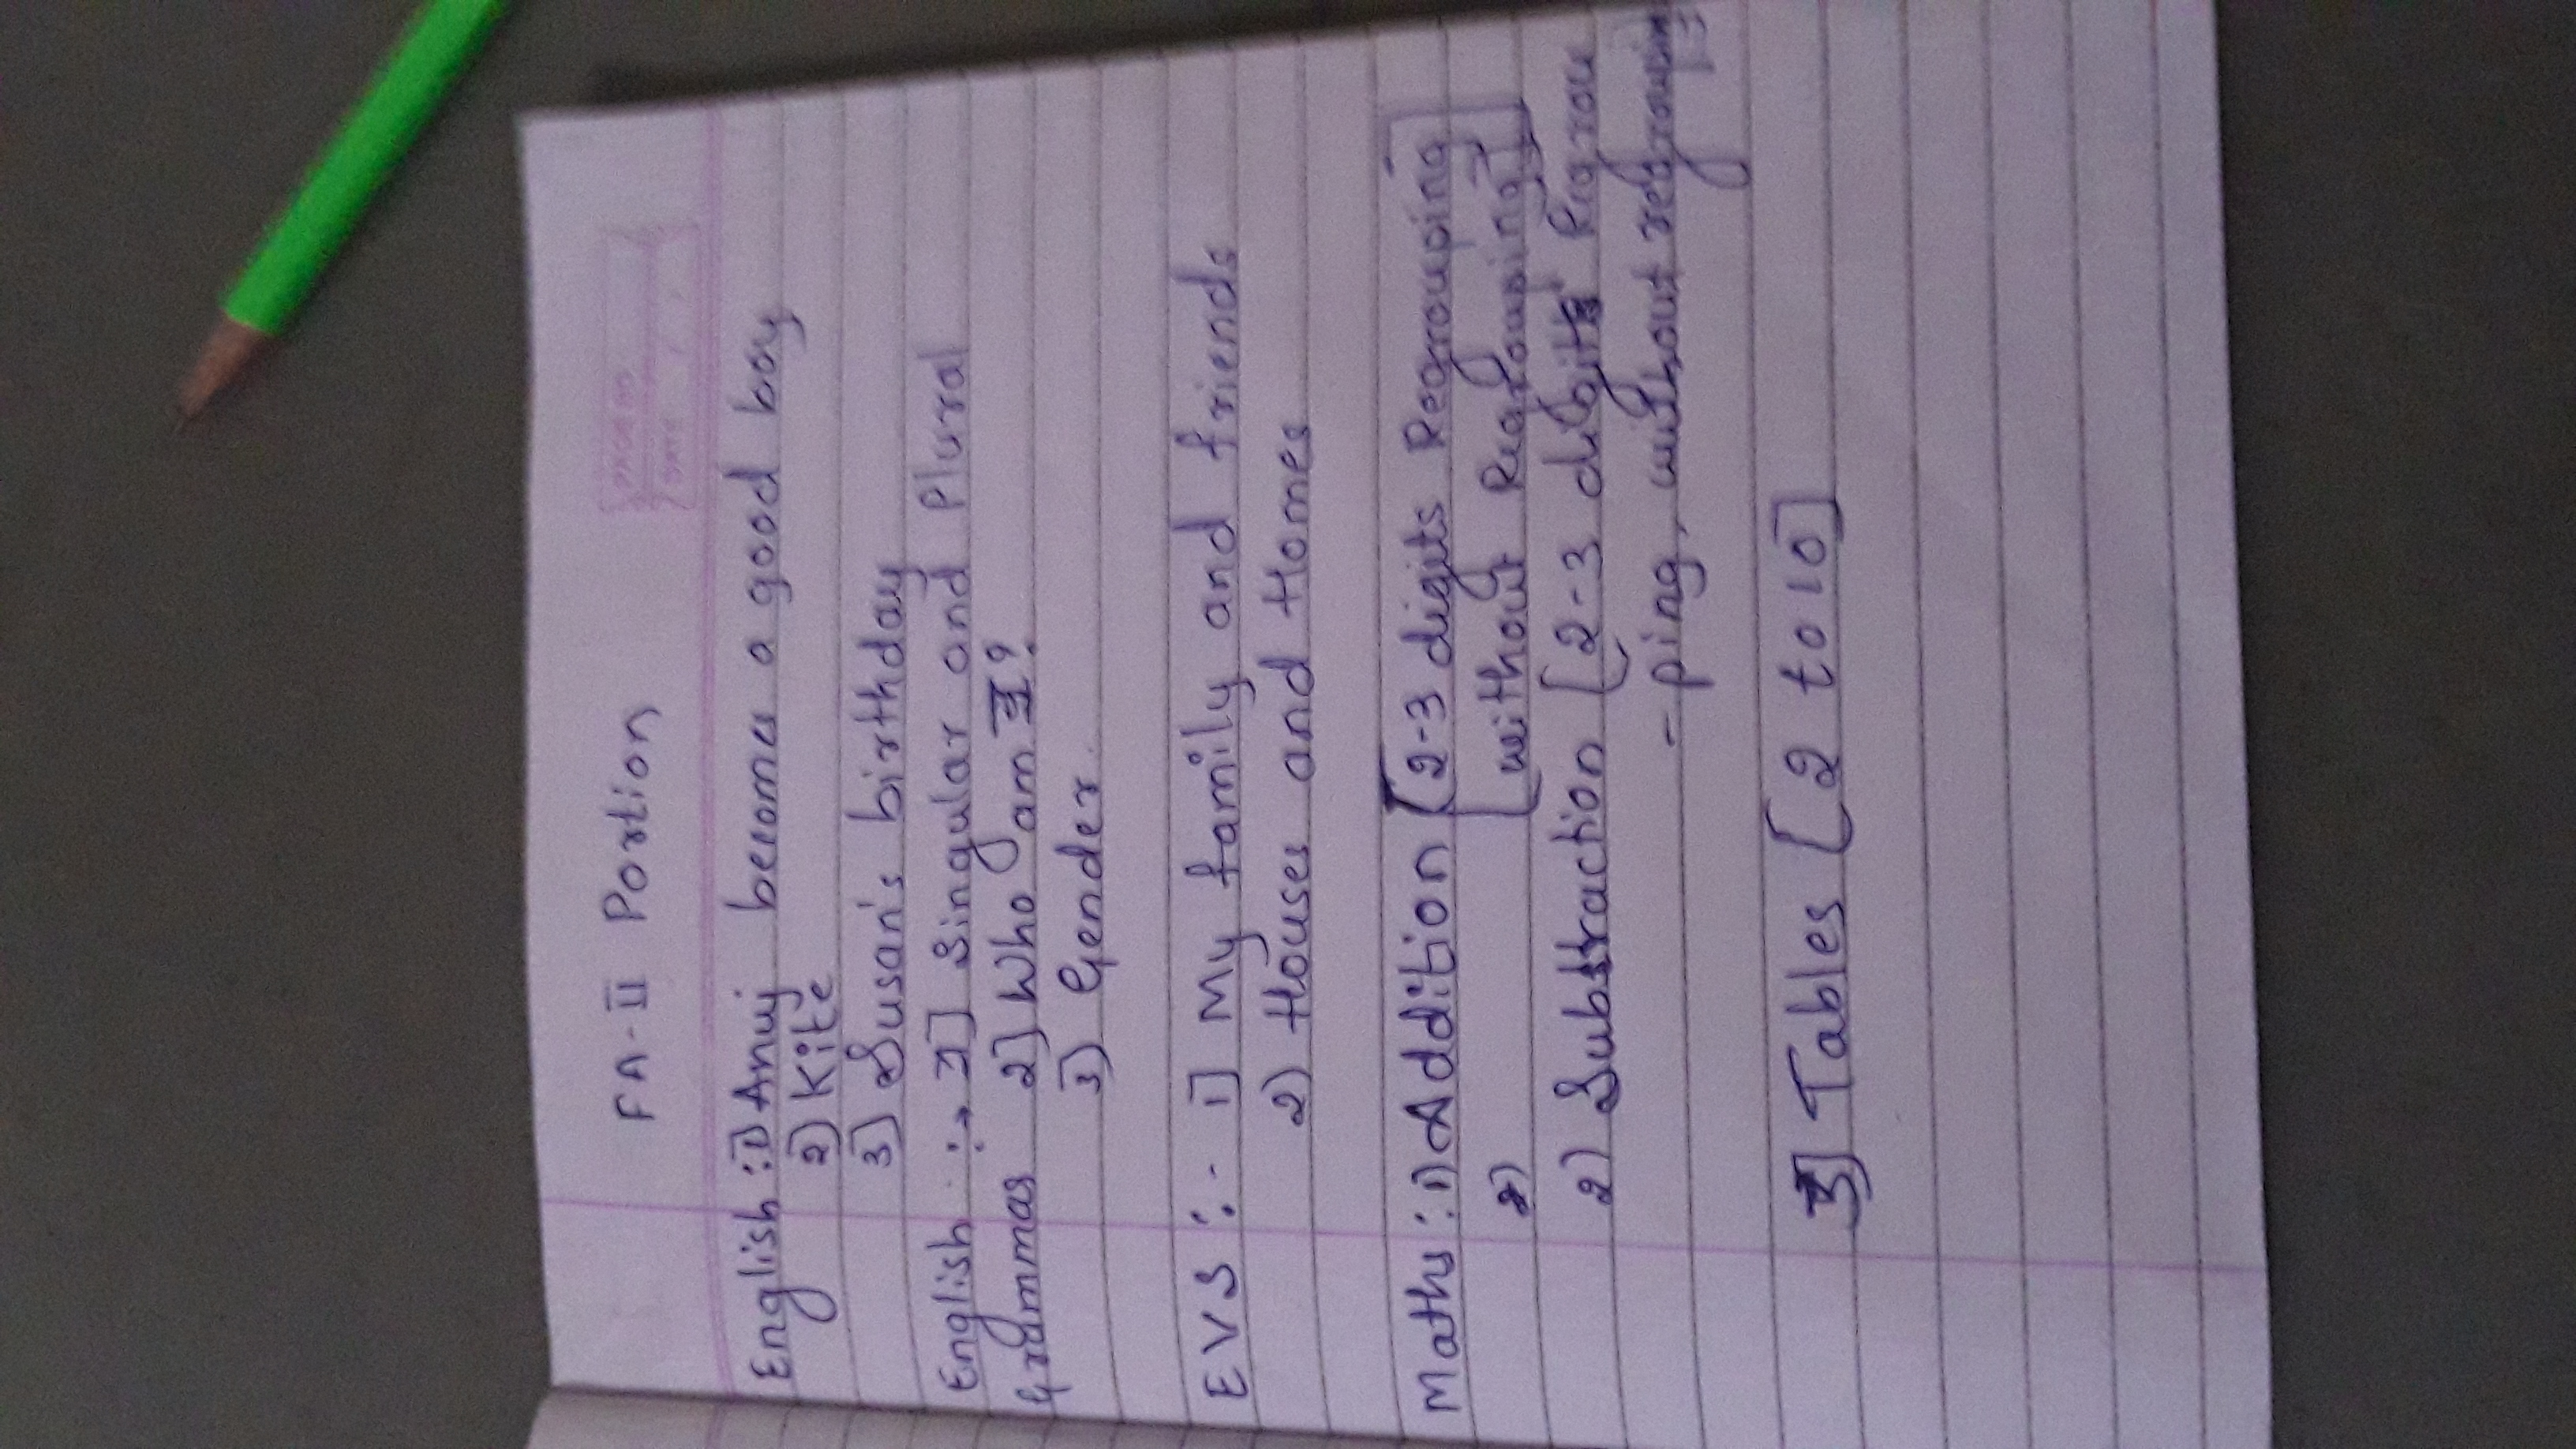 PAGE NO
DATE
FA-II Portion
English :1) Anuj becomes a good boy
2) Kite
3) Susan's birthday
English :→ 1] Singular and Plural
Grammar 2] Who am I?
3) Gender.
EVS :- 1] My family and friends
2) Houses and Homes
Maths : 1) Addition [2-3 digits Regrouping]
2) [without Regrouping]
2) Substraction [2-3 digits Regrou
- ping, without regrouping]
3] Tables [2 to 10]